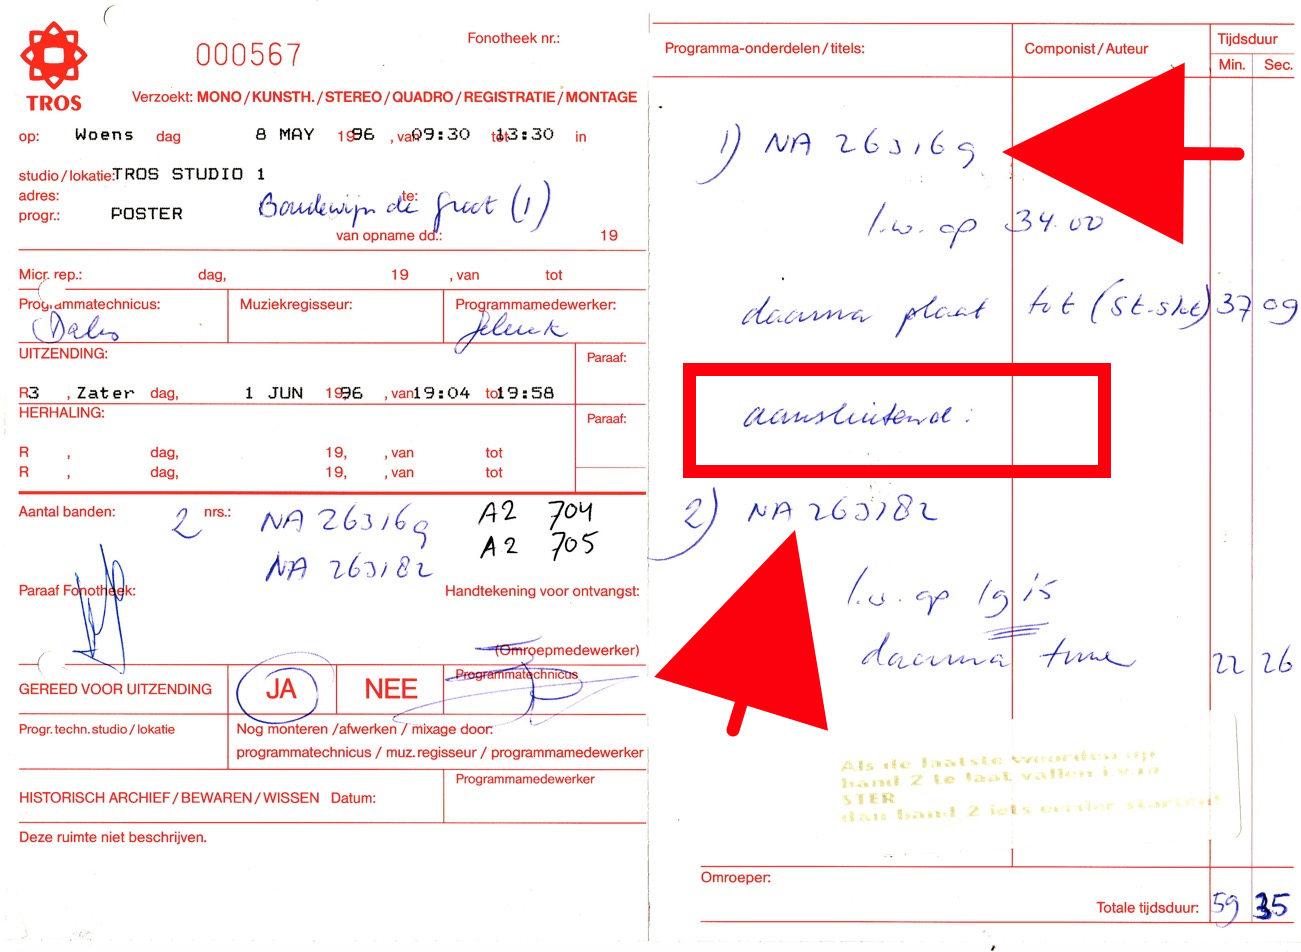 000567
Fonotheek nr.:
TROS
Verzoekt: MONO / KUNSTH. / STEREO / QUADRO / REGISTRATIE / MONTAGE
op: Woens dag 8 MAY 1996 , van 09:30 tot 13:30 in
studio / lokatie: TROS STUDIO 1
adres: te:
progr.: POSTER Boudewijn de Groot (1)
van opname dd.: 19
Micr. rep.: dag, 19 , van tot
Programmatechnicus: Muziekregisseur: Programmamedewerker:
UITZENDING: Paraaf:
R3 , Zater dag, 1 JUN 1996 , van 19:04 tot 19:58
HERHALING: Paraaf:
R , dag, 19, , van tot
R , dag, 19, , van tot
Aantal banden: 2 nrs.: NA 263169 A2 704
NA 263182 A2 705
Paraaf Fonotheek: Handtekening voor ontvangst:
(Omroepmedewerker)
GEREED VOOR UITZENDING JA NEE Programmatechnicus
Progr. techn. studio / lokatie Nog monteren / afwerken / mixage door:
programmatechnicus / muz. regisseur / programmamedewerker
Programmamedewerker
HISTORISCH ARCHIEF / BEWAREN / WISSEN Datum:
Deze ruimte niet beschrijven.
Programma-onderdelen / titels: Componist / Auteur Tijdsduur
Min. Sec.
1) NA 263169
l.w. op 34.00
daarna plaat tot 37 09
aansluitend:
2) NA 263182
l.w. op 19 15
daarna tune 22 26
Als de laatste woorden op
band 2 te laat vallen i.v.m
STER
dan band 2 iets eerder starten!
Omroeper:
Totale tijdsduur: 59 35